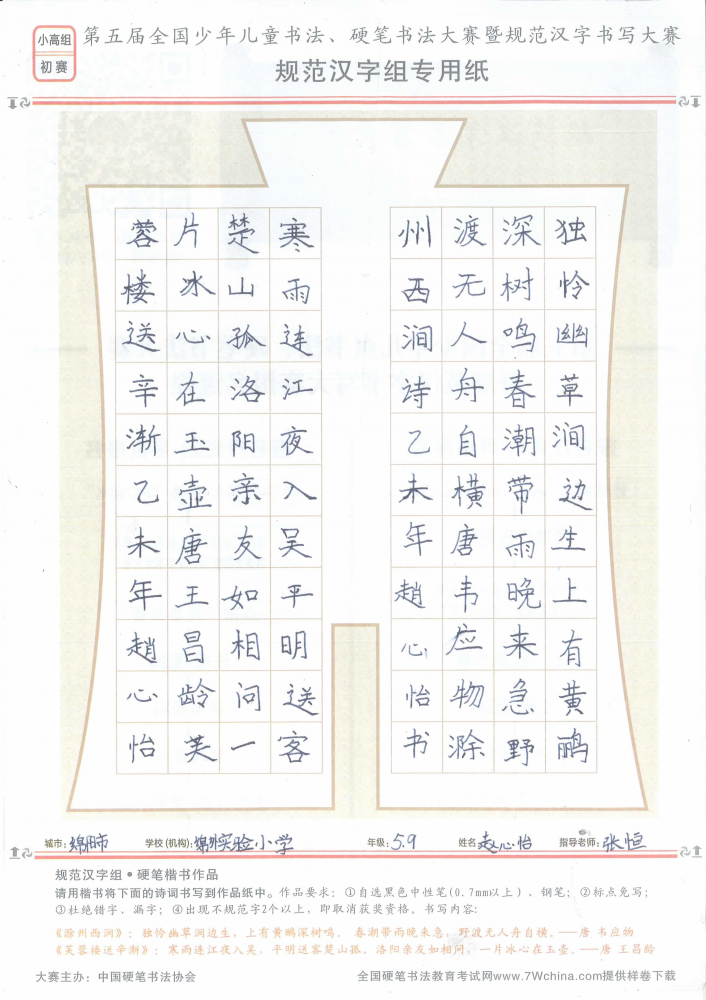 小高组
初赛
第五届全国少年儿童书法、硬笔书法大赛暨规范汉字书写大赛
规范汉字组专用纸
独怜幽草涧边生上有黄鹂
深树鸣春潮带雨晚来急野
渡无人舟自横唐韦应物滁
州西涧诗乙未年趙心怡书
寒雨连江夜入吴平明送客
楚山孤洛阳亲友如相问一
片冰心在玉壶唐王昌龄芙
蓉楼送辛渐乙未年趙心怡
城市：绵阳市 学校(机构)：绵外实验小学 年级：5.9 姓名 赵心怡 指导老师：张恒
规范汉字组●硬笔楷书作品
请用楷书将下面的诗词书写到作品纸中。作品要求：①自选黑色中性笔(0.7mm以上)、钢笔；②标点免写；
③杜绝错字、漏字；④出现不规范字2个以上，即取消获奖资格。书写内容：
《滁州西涧》：独怜幽草涧边生，上有黄鹂深树鸣。 春潮带雨晚来急，野渡无人舟自横。——唐 韦应物
《芙蓉楼送辛渐》：寒雨连江夜入吴，平明送客楚山孤。洛阳亲友如相问，一片冰心在玉壶。——唐 王昌龄
大赛主办：中国硬笔书法协会 全国硬笔书法教育考试网www.7Wchina.com提供样卷下载